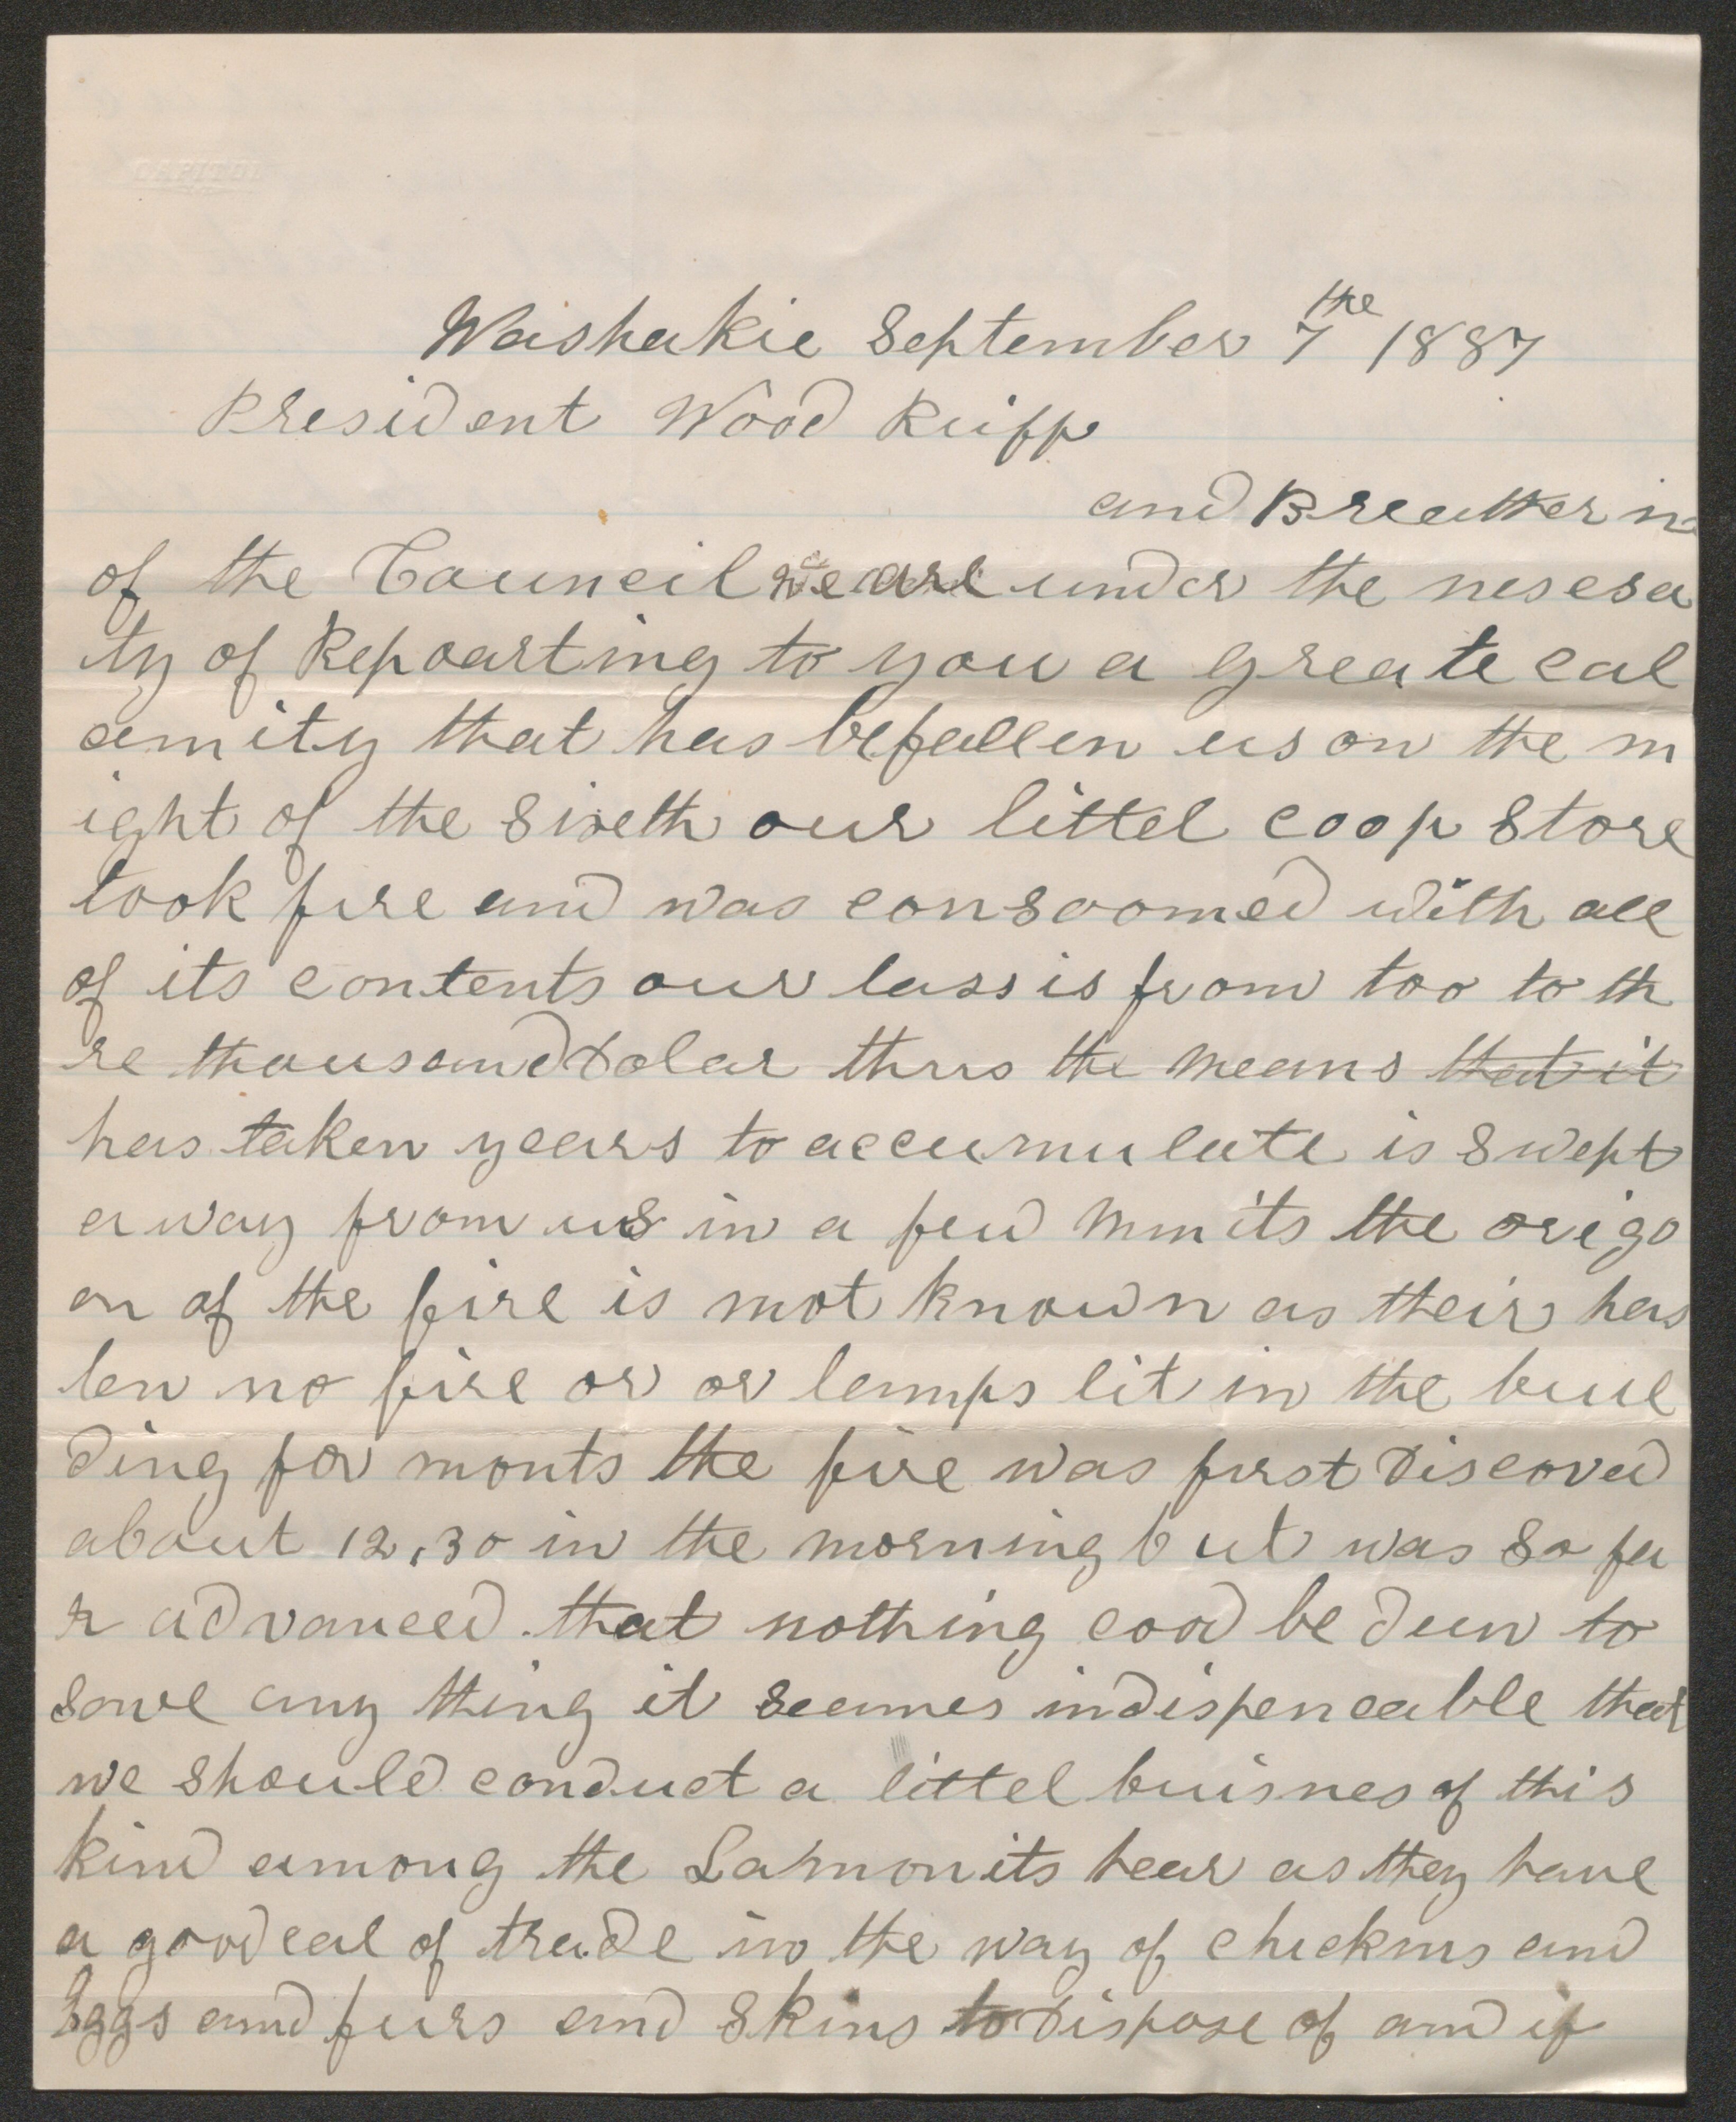 CAPITOL
Washakie September 7the 1887
President Wood Ruiff
and Breatherin
of the Council we are under the nesesa
ty of Repoarting to you a greate cal
amity that has befallen us on the n
ight of the sixeth our littel coop store
took fire and was consoomed with all
of its contents our lass is from too to th
re thousand Dolar thus the means that it
has taken years to accumulate is swept
away from us in a few minits the orego
on of the fire is not known as their has
ben no fire or or lamps lit in the buil
ding for monts the fire was first Discoverd
about 12,30 in the morning but was so fa
r advanced that nothing cood be dun to
save any thing it seames indispencable that
we should conduct a littel buisnes of this
kind among the Lamonits hear as they have
a goodeal of trade in the way of chickins and
Eggs and furs and skins to Dispose of and if